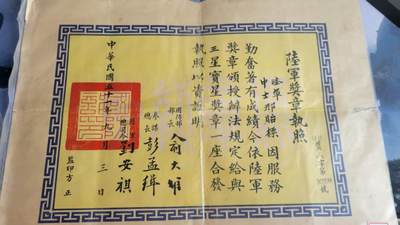 陸軍獎章執照
獎人字第 號
陸軍中士 因服務
勤奮著有成績今依陸軍
獎章頒授辦法規定給與
三星寶星獎章一座合發
執照以資證明
國防部部長 俞大維
參謀總長 彭孟緝
陸軍總司令 劉安祺
中華民國五十一年九月三日
監印方正